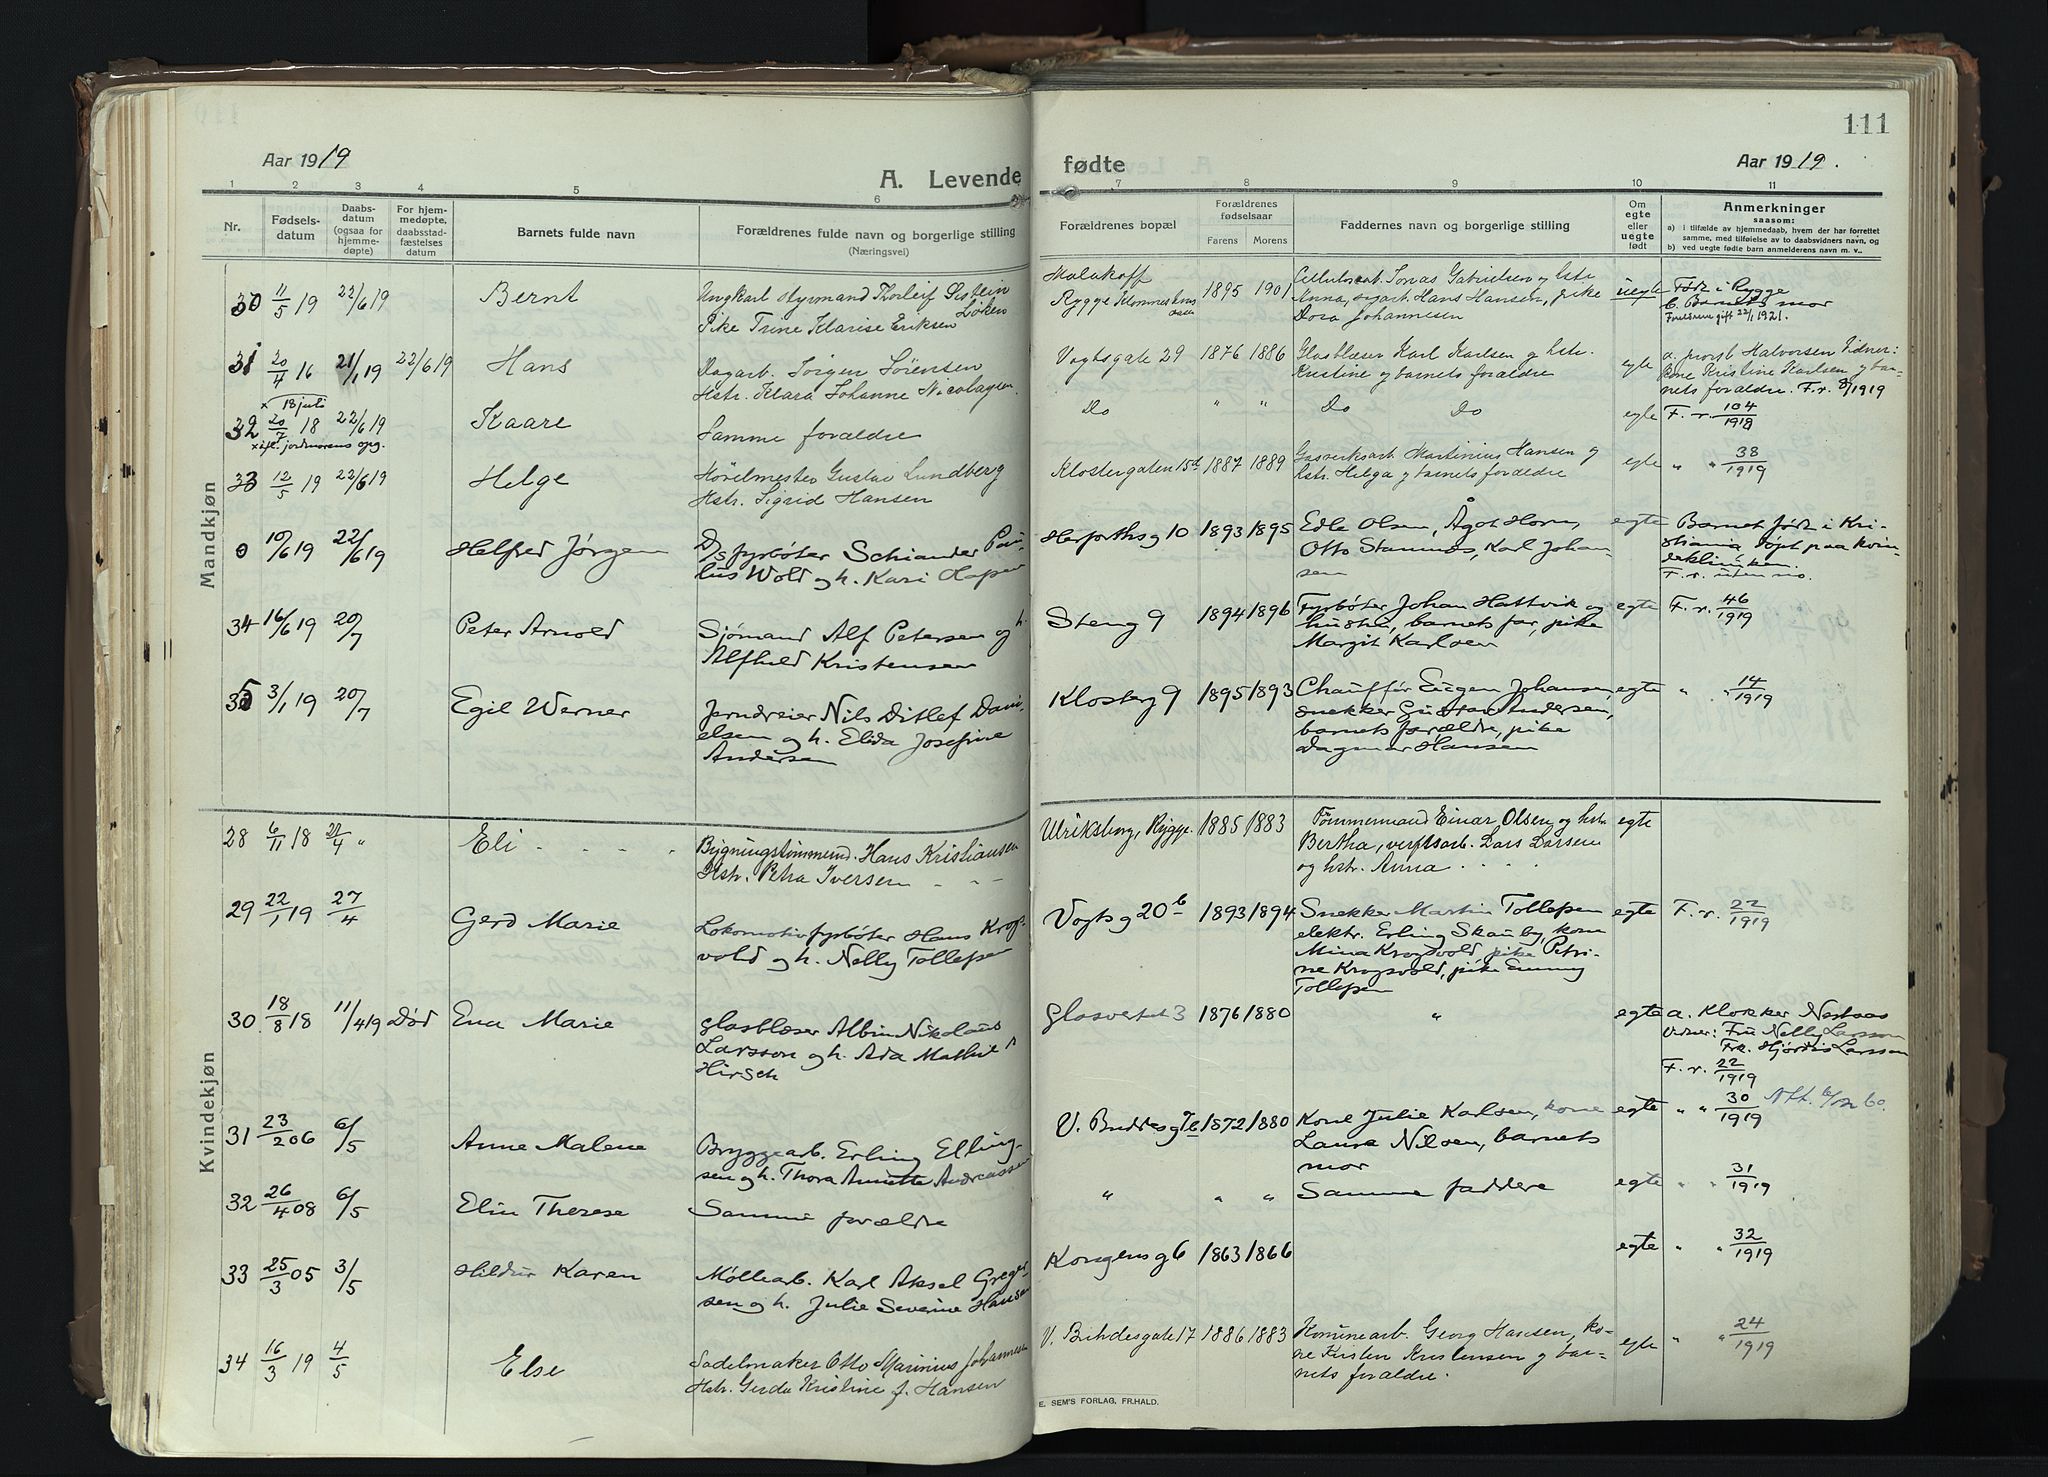 111
Aar 1919
A. Levende fødte
Aar 1919.
1 2 3 4 5 6 7 8 9 10 11
Nr.
Fødsels-
datum
Daabs-
datum
(ogsaa for
hjemme-
døpte)
For hjem-
medøpte,
daabsstad-
fæstelses
datum
Barnets fulde navn
Forældrenes fulde navn og borgerlige stilling
(Næringsvei)
Forældrenes bopæl
Forældrenes
fødselsaar
Farens Morens
Faddernes navn og borgerlige stilling
Om
egte
eller
uegte
født
Anmerkninger
saasom:
a) i tilfælde av hjemmedaab, hvem der har forrettet
samme, med tilføielse av to daabsvidners navn, og
b) ved uegte fødte barn anmelderens navn m. v..
Mandkjøn
30 11/5 19 22/6 19 Bernt
Ungkarl Thorleif
Løken
Pike Trine Klarise Eriksen
Malakoff
Rygge
1895 1901
Jonas Gabrielsen og hstr.
Anna, Hans Hansen, pike
Dora Johannesen
uegte
Født i Rygge
b. Barnets mor
Foreldrene gift 22/1 1921.
31 20/4 16 21/1 19 22/6 19 Hans
Dagarb. Jørgen Sørensen
Hstr. Klara Johanne Nicolaysen
Vogtsgate 29 1876 1886
Glasblæser Karl Karlsen og hstr.
Kristine og barnets forældre
egte
a. provst Halvorsen Vidner:
kone Kristine Karlsen og bar-
nets forældre. F. r. 8/1919
x 18 juli
32 20/7 18 22/6 19 Kaare
x ifl. jordmorens opg.
Samme forældre
Do " " Do Do egte F. r. 104/1918
33 12/5 19 22/6 19 Helge
Høvelmester Gustav Lundberg
Hstr. Sigrid Hansen
Klostergaten 15d 1887 1889
Gasverksarb. Martinius Hansen og
hstr. Helga og barnets forældre
egte " " 38/1919
0 10/6 19 22/6 19 Helfred Jørgen
D/s fyrbøter Schiander Pau-
lus Wold og h. Kari
Herforths g 10 1893 1895
Edle Olsen, Ågot Horn,
Otto Stamnes, Karl Johan-
sen
egte
Barnet født i Kri-
stiania, døpt paa kvin-
neklinikken.
F. r. uten no.
34 16/6 19 20/7 Peter Arnold
Sjømand Alf Petersen og h.
Alfhild Kristensen
Steng 9 1894 1896
Fyrbøter Johan Hattvik og
hustru, barnets far, pike
Margit Karlsen
egte F. r. 46/1919
35 3/1 19 20/7 Egil Werner
Jerndreier Nils Ditlef Dani-
elsen og h. Elida Josefine
Andersen
Klosterg 9 1895 1893
Chauffør Eugen Johansen,
snekker Gustav Andersen,
barnets forældre, pike
Dagmar Hansen
egte " " 14/1919
Kvindekjøn
28 6/11 18 21/4 " Eli
Bygningstømmermd. Hans Kristiansen
Hstr. Petra Iversen
Ulriksborg, Rygge. 1885 1883
Tømmermand Einar Olsen og hstr.
Bertha, verftsarb. Lars Larsen
og hstr. Anna
egte
29 22/1 19 27/4 Gerd Marie
Lokomotivfyrbøter Hans Krogs-
vold og h. Nelly Tollefsen
Vogts g 20 b 1893 1894
Snekker Martin Tollefsen
elektr. Erling Skauby, kone
Mina Krogsvold, pike Petri-
ne Krogsvold, pike Emmy
Tollefsen
egte F. r. 22/1919
30. 18/8 18 11/4 19 Død Eva Marie
Glasblæser Albin Nikolaus
Larsson og h. Ada Mathilde
Hirsch
Glasverket 3 1876 1880 "
egte
a. Klokker Nestaas
Vidner: Fru Nelly Larsson
Frk. Hjørdis Larsson
F. r. 22/1919
31 23/2 06 6/5 Anne Malene
Bryggearb. Erling Elling-
sen og h. Thora Annette Andreassen
V. Buddesg 7b 1872 1880
Kone Julie Karlsen, kone
Laura Nilsen, barnets
mor
egte " " 30/1919
32 26/4 08 6/5 Elin Therese
Samme forældre
" " " Samme faddere egte " " 31/1919
33 25/3 05 3/5 Hildur Karen
Møllearb. Karl Aksel Greger-
sen og h. Julie Severine Hansen
Kongens g 6 1863 1866 egte " " 32/1919
34 16/3 19 4/5 Else
Sadelmaker Otto Marinius Johannesen
Hstr. Gerda Kristine f. Hansen
V. Buddesgate 17 1886 1883
Komunearb. Georg Hansen, ko-
ne Kristen Kristensen og bar-
nets forældre.
egte " " 24/1919
E. SEM'S FORLAG, FR.HALD.